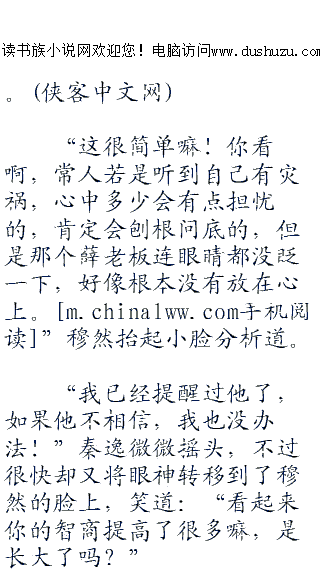 读书族小说网欢迎您！电脑访问www.dushuzu.com
。(侠客中文网)
“这很简单嘛！你看
啊，常人若是听到自己有灾
祸，心中多少会有点担忧
的，肯定会刨根问底的，但
是那个薛老板连眼睛都没眨
一下，好像根本没有放在心
上。[m.china1ww.com手机阅
读]”穆然抬起小脸分析道。
“我已经提醒过他了，
如果他不相信，我也没办
法！”秦逸微微摇头，不过
很快却又将眼神转移到了穆
然的脸上，笑道：“看起来
你的智商提高了很多嘛，是
长大了吗？”